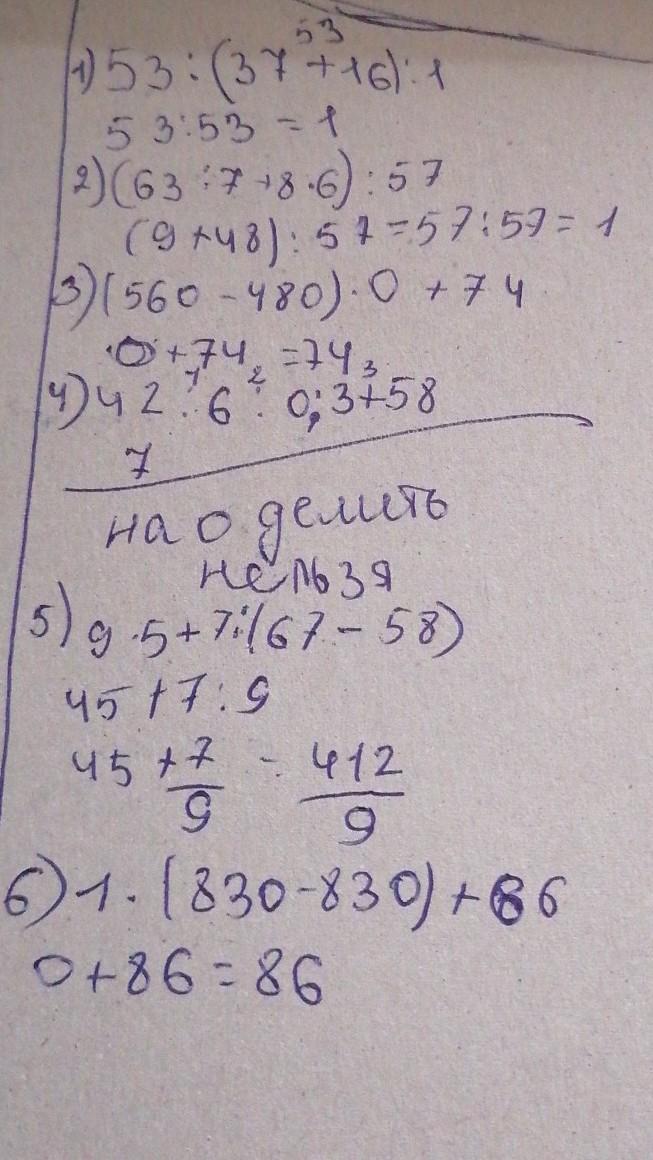 53
1) 53 : (37 + 16) : 1
53 : 53 = 1
2) (63 : 7 + 8 · 6) : 57
(9 + 48) : 57 = 57 : 57 = 1
3) (560 - 480) · 0 + 74
0 + 74 = 74
1 2 3
4) 42 : 6 : 0 : 3 + 58
7
на 0 делить
нельзя
5) 9 · 5 + 7 : (67 - 58)
45 + 7 : 9
45 + 7/9 = 412/9
6) 1 · (830 - 830) + 86
0 + 86 = 86